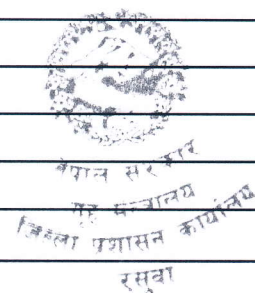 नेपाल सरकार
गृह मन्त्रालय
जिल्ला प्रशासन कार्यालय
रसुवा